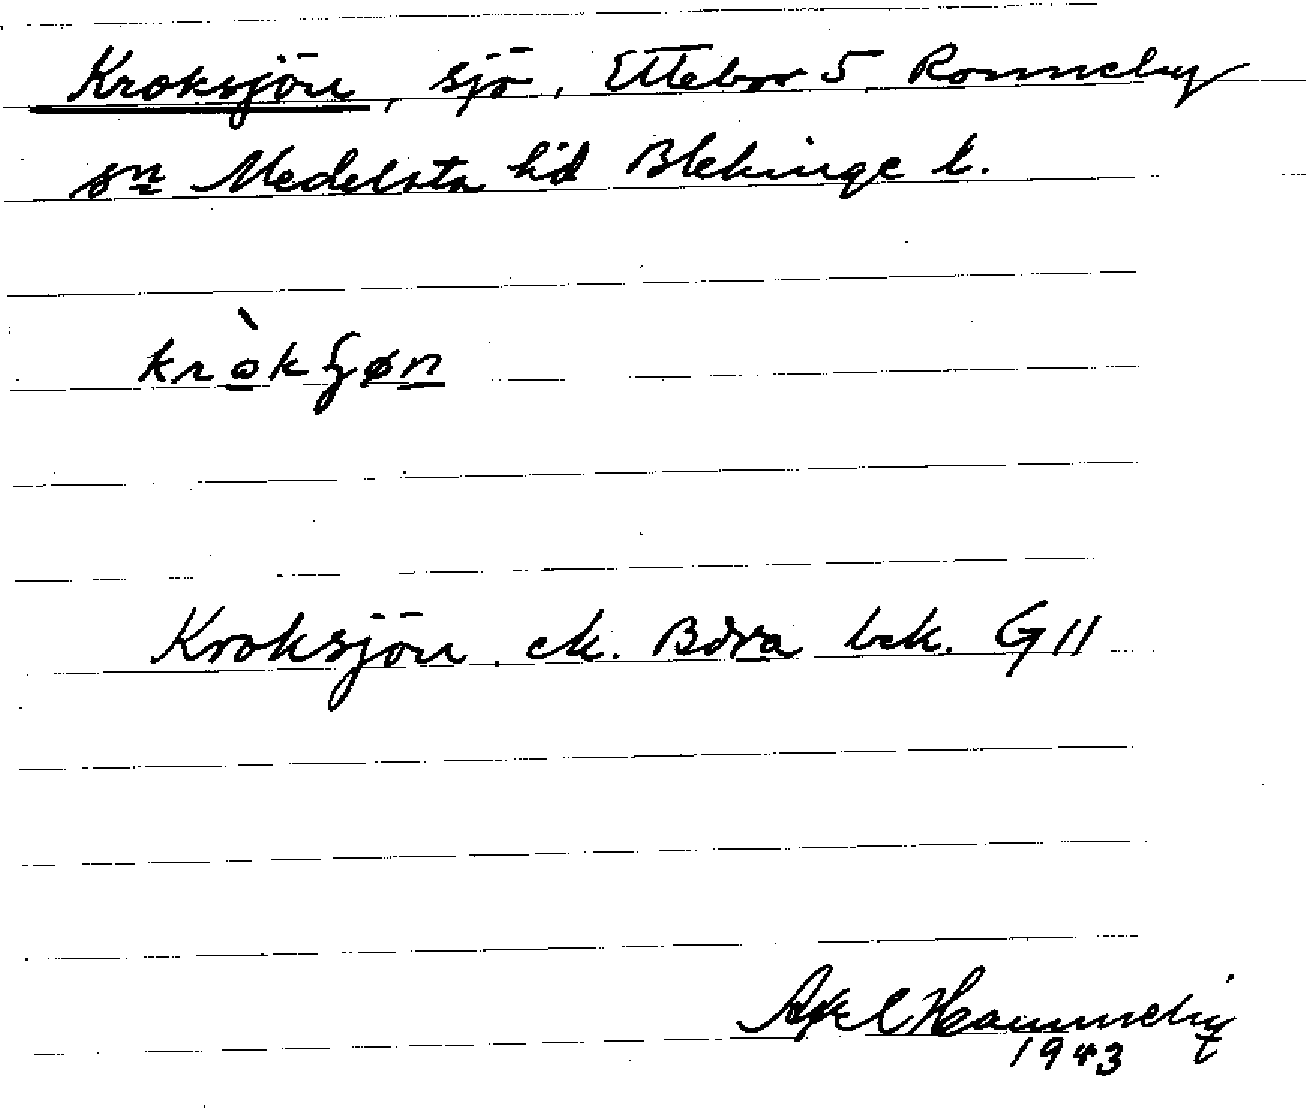 Kroksjön, sjö, Ettebro 5 Ronneby
sn Medelsta hd Blekinge l.
kròkʃøn
Kroksjön, ek. Böra bek. G11
Axel Hammeby
1943